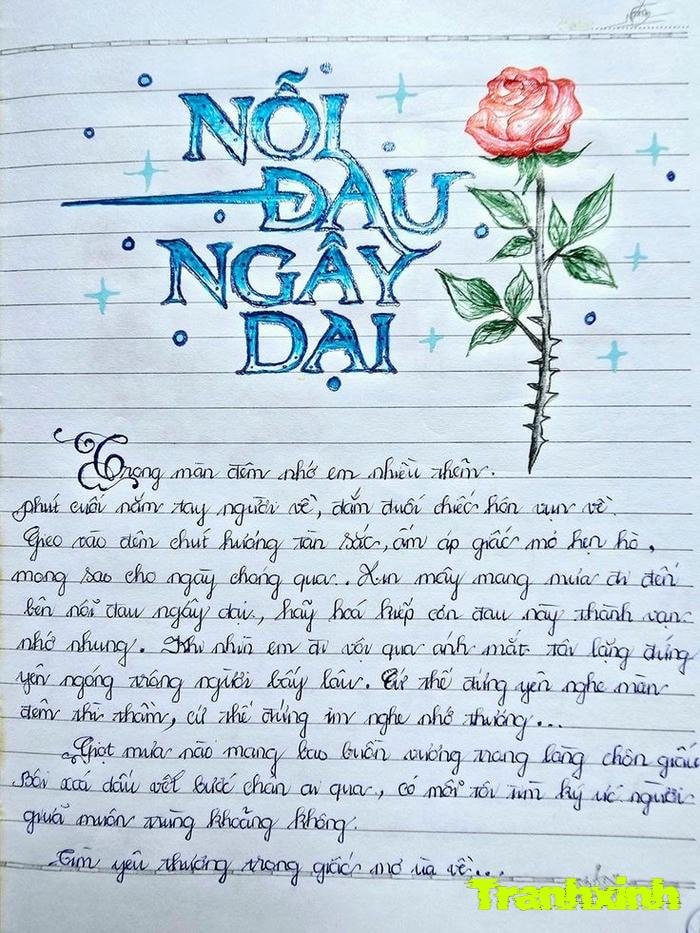 NỖI
ĐAU
NGÂY
DẠI
Trong màn đêm nhớ em nhiều thêm.
phút cuối nắm tay người về, đắm đuối chiếc hôn vụn về.
Gieo vào đêm chút hương tàn sắc, ấm áp giấc mơ hẹn hò,
mong sao cho ngày chóng qua.. Xin mây mang mưa đi đến
bên nỗi đau ngây dại, hãy hoá kiếp cơn đau này thành vạn
nhớ nhung. Khi nhìn em đi vội qua ánh mắt tôi lặng đứng
yên ngóng trông người bấy lâu. Cứ thế đứng yên nghe màn
đêm thì thầm, cứ thế đứng im nghe nhớ thương...
Giọt mưa nào mang bao buồn vương trong lòng chôn giấu
Bôi xoá dấu vết bước chân ai qua, có mỗi tôi tìm ký ức người
giữa muôn trùng khoảng không.
Tìm yêu thương trong giấc mơ ùa về...
Tranhxinh